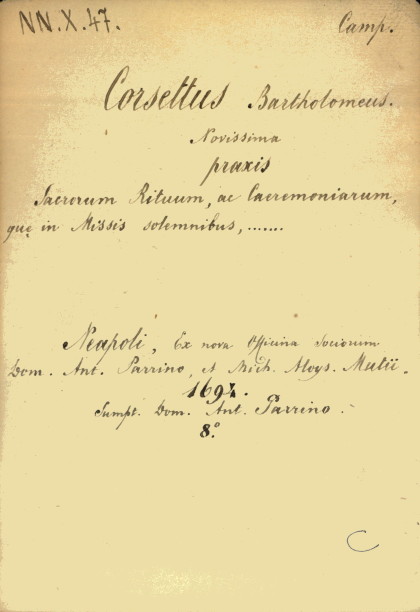 NN.X.47.
Camp.
Corsettus Bartholomeus.
Novissima
praxis
Sacrorum Rituum, ac Caeremoniarum,
quę in Missis solemnibus, .......
Neapoli, Ex nova Officina Sociorum
Dom. Ant. Parrino, et Mich. Aloys. Mutii.
1694.
Sumpt. Dom. Ant. Parrino.
8.º
C